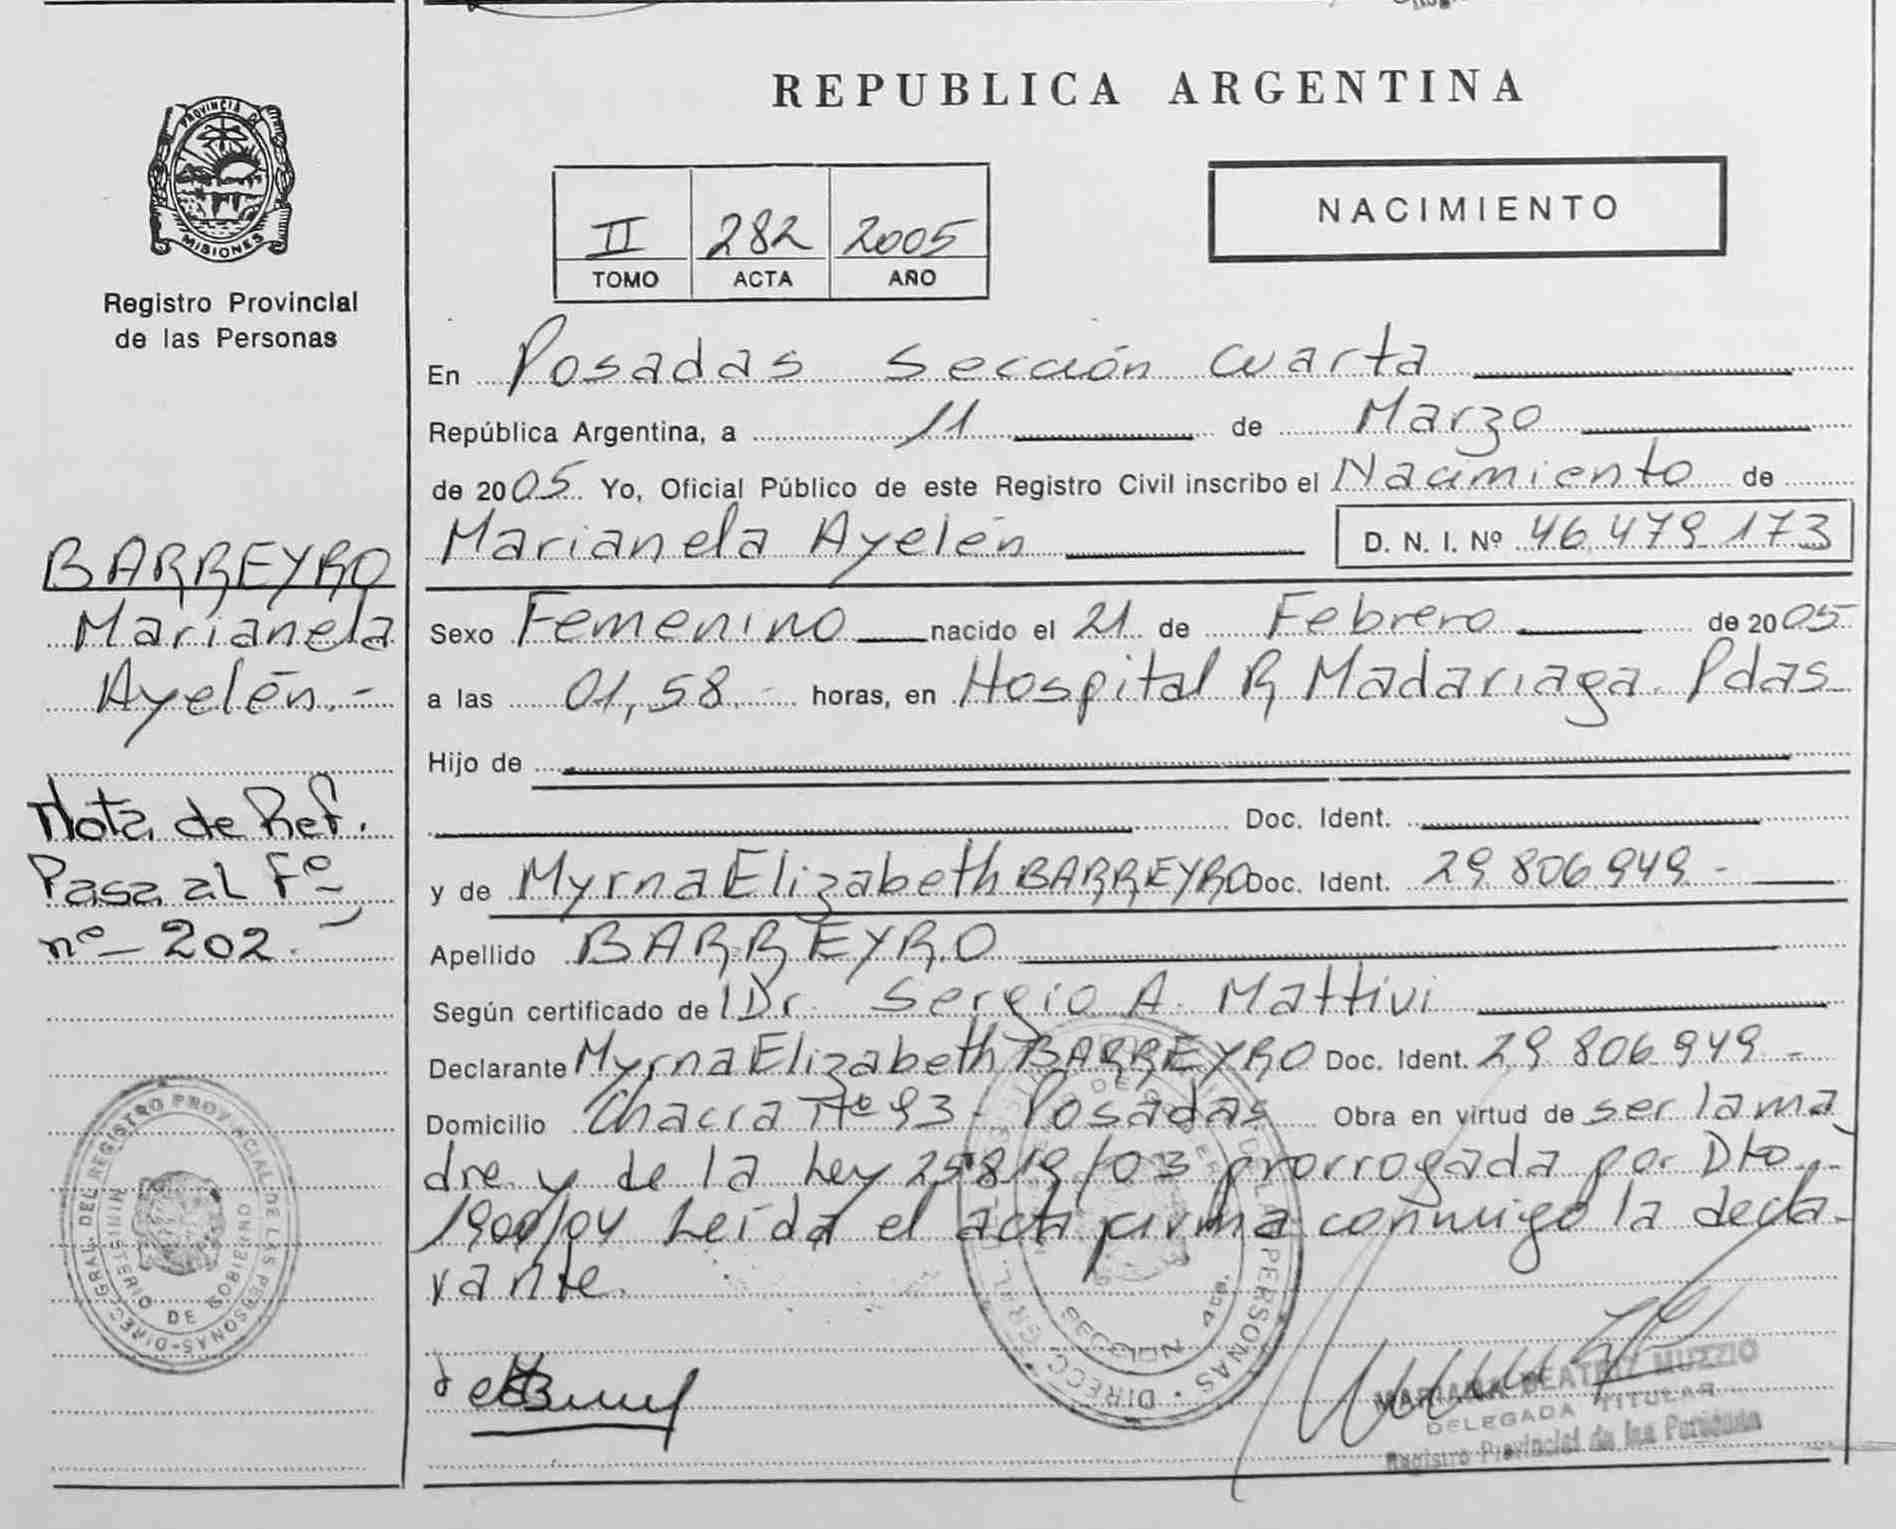 PROVINCIA DE
MISIONES
Registro Provincial
de las Personas
BARREYRO
Marianela
Ayelén.-
Nota de Ref.
Pasa al Fº
nº 202.
DIRECC. GRAL. DEL REGISTRO PROVINCIAL DE LAS PERSONAS
MINISTERIO DE GOBIERNO
REPUBLICA ARGENTINA
II 282 2005
TOMO ACTA AÑO
NACIMIENTO
En Posadas Sección Cuarta
República Argentina, a 11 de Marzo
de 2005 Yo, Oficial Público de este Registro Civil inscribo el Nacimiento de
Marianela Ayelén D. N. I. Nº 46.479.173
Sexo Femenino nacido el 21 de Febrero de 2005
a las 01,58.- horas, en Hospital R Madariaga. Pdas
Hijo de
Doc. Ident.
y de Myrna Elizabeth BARREYRO Doc. Ident. 29.806.949.-
Apellido BARREYRO
Según certificado de Dr. Sergio A. Mattivi
Declarante Myrna Elizabeth BARREYRO Doc. Ident. 29.806.949.-
Domicilio Chacra Nº 93 - Posadas Obra en virtud de ser la ma
dre y de la Ley 25819/03 prorrogada por Dto.
1900/04 Leída el acta firma conmigo la decla-
rante.
SECCION 4ta.
MARIANA BEATRIZ MUZZIO
DELEGADA TITULAR
Registro Provincial de las Personas